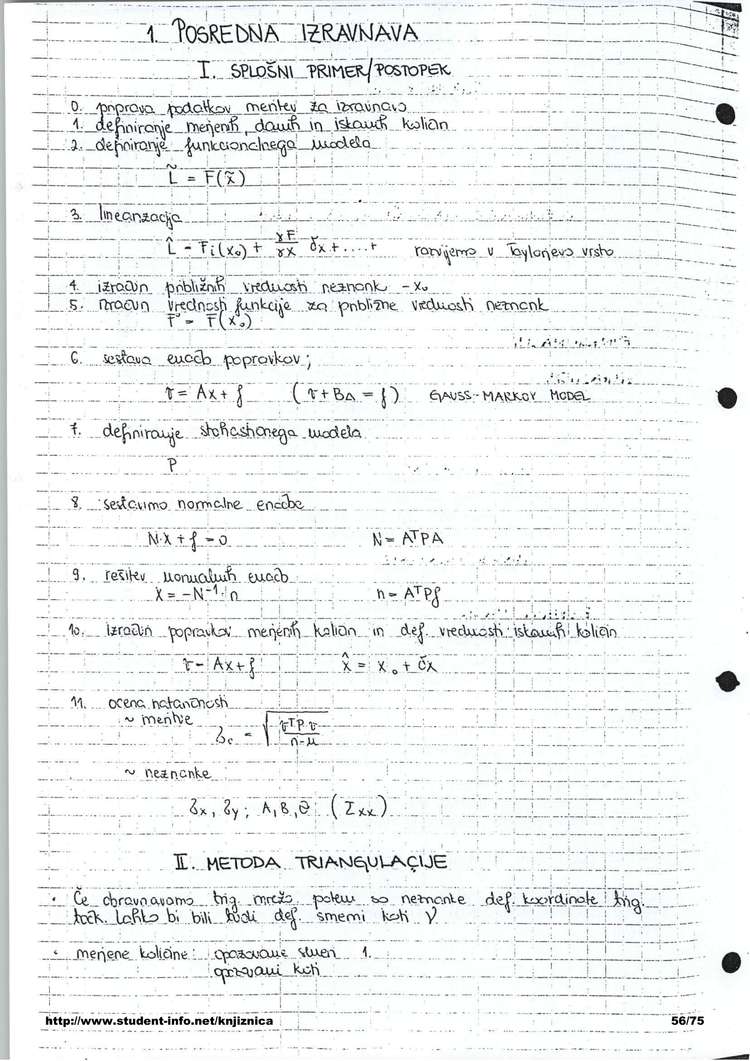 1. POSREDNA IZRAVNAVA
I. SPLOŠNI PRIMER/POSTOPEK
0. priprava podatkov meritev za izravnavo
1. definiranje merjenih, danih in iskanih količin
2. definiranje funkcionalnega modela
L̃ = F(x̃)
3. linearizacija
L̂ = Fi(x₀) + γF/γx δx + .... + razvijemo v Taylorjevo vrsto
4. izračun približnih vrednosti neznank - x₀
5. izračun vrednosti funkcije za približne vrednosti neznank
F° = F(x₀)
6. sestava enačb popravkov;
v = Ax + f (v + BΔ = f) GAUSS-MARKOV MODEL
7. definiranje stohastičnega modela
P
8. sestavimo normalne enačbe
N·X + f = 0 N = AᵀPA
9. rešitev normalnih enačb
X = -N⁻¹·n n = AᵀPf
10. izračun popravkov merjenih količin in def. vrednosti iskanih količin
v = Ax + f x̂ = x₀ + δx
11. ocena natančnosti
~ meritve
σ₀ = √(vᵀPv / n-u)
~ neznanke
σx, σy; A, B, Θ (Σxx)
II. METODA TRIANGULACIJE
• Če obravnavamo trig. mrežo potem so neznanke def. koordinate trig.
točk. Lahko bi bili tudi def. smerni koti ν
• merjene količine: opazovane smeri 1.
opazovani koti
http://www.student-info.net/knjiznica 56/75